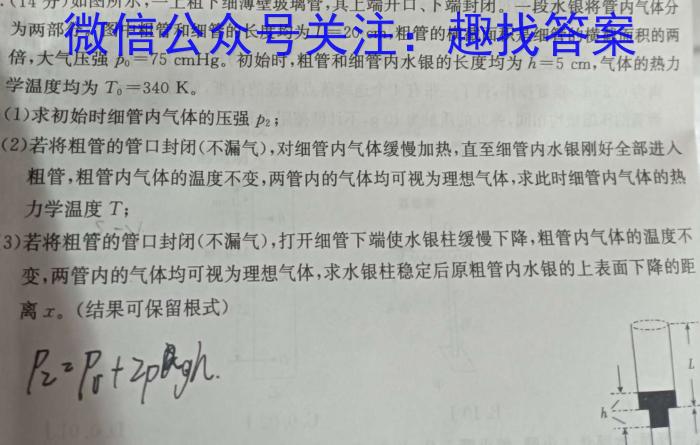 .(14分)如图所示,一上粗下细薄壁玻璃管,其上端开口、下端封闭。一段水银将管内气体分
为两部分,图中粗管和细管的长度均为L=20 cm,粗管的横截面积是细管的横截面积的两
微信公众号关注:趣找答案
倍,大气压强 p₀=75 cmHg。初始时,粗管和细管内水银的长度均为 h=5 cm,气体的热力
学温度均为 T₀=340 K。
(1)求初始时细管内气体的压强 p₂;
(2)若将粗管的管口封闭(不漏气),对细管内气体缓慢加热,直至细管内水银刚好全部进入
粗管,粗管内气体的温度不变,两管内的气体均可视为理想气体,求此时细管内气体的热
力学温度 T;
3)若将粗管的管口封闭(不漏气),打开细管下端使水银柱缓慢下降,粗管内气体的温度不
变,两管内的气体均可视为理想气体,求水银柱稳定后原粗管内水银的上表面下降的距
离 x。(结果可保留根式)
P₂=P₀+2ρgh.
L
h